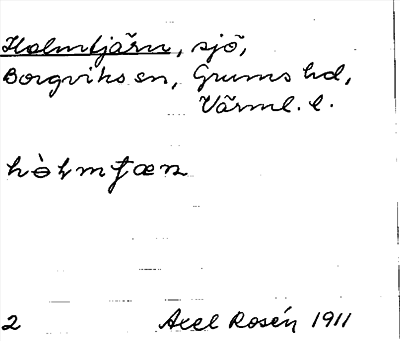 Holmtjärn, sjö,
Borgviks sn, Grums hd,
Värml. l.
2 Axel Rosén 1911